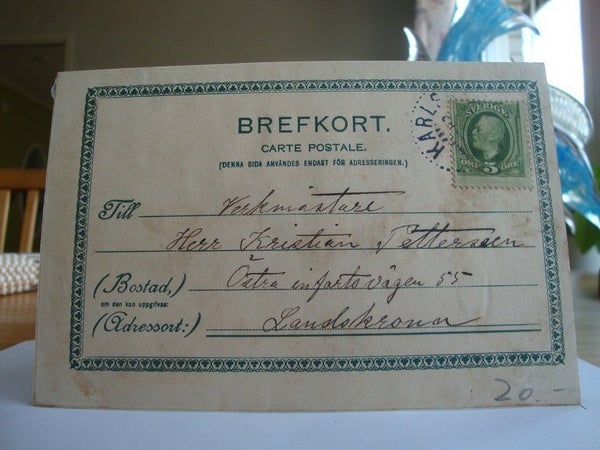 BREFKORT.
CARTE POSTALE.
(DENNA SIDA ANVÄNDES ENDAST FÖR ADRESSERINGEN.)
KARLS
SVERIGE
ÖRE 5 ÖRE
Till Verkmästare
Herr Kristian Petterssen
(Bostad,) Östra infartsvägen 55
om den kan uppgifvas:
(Adressort:) Landskrona
20.-